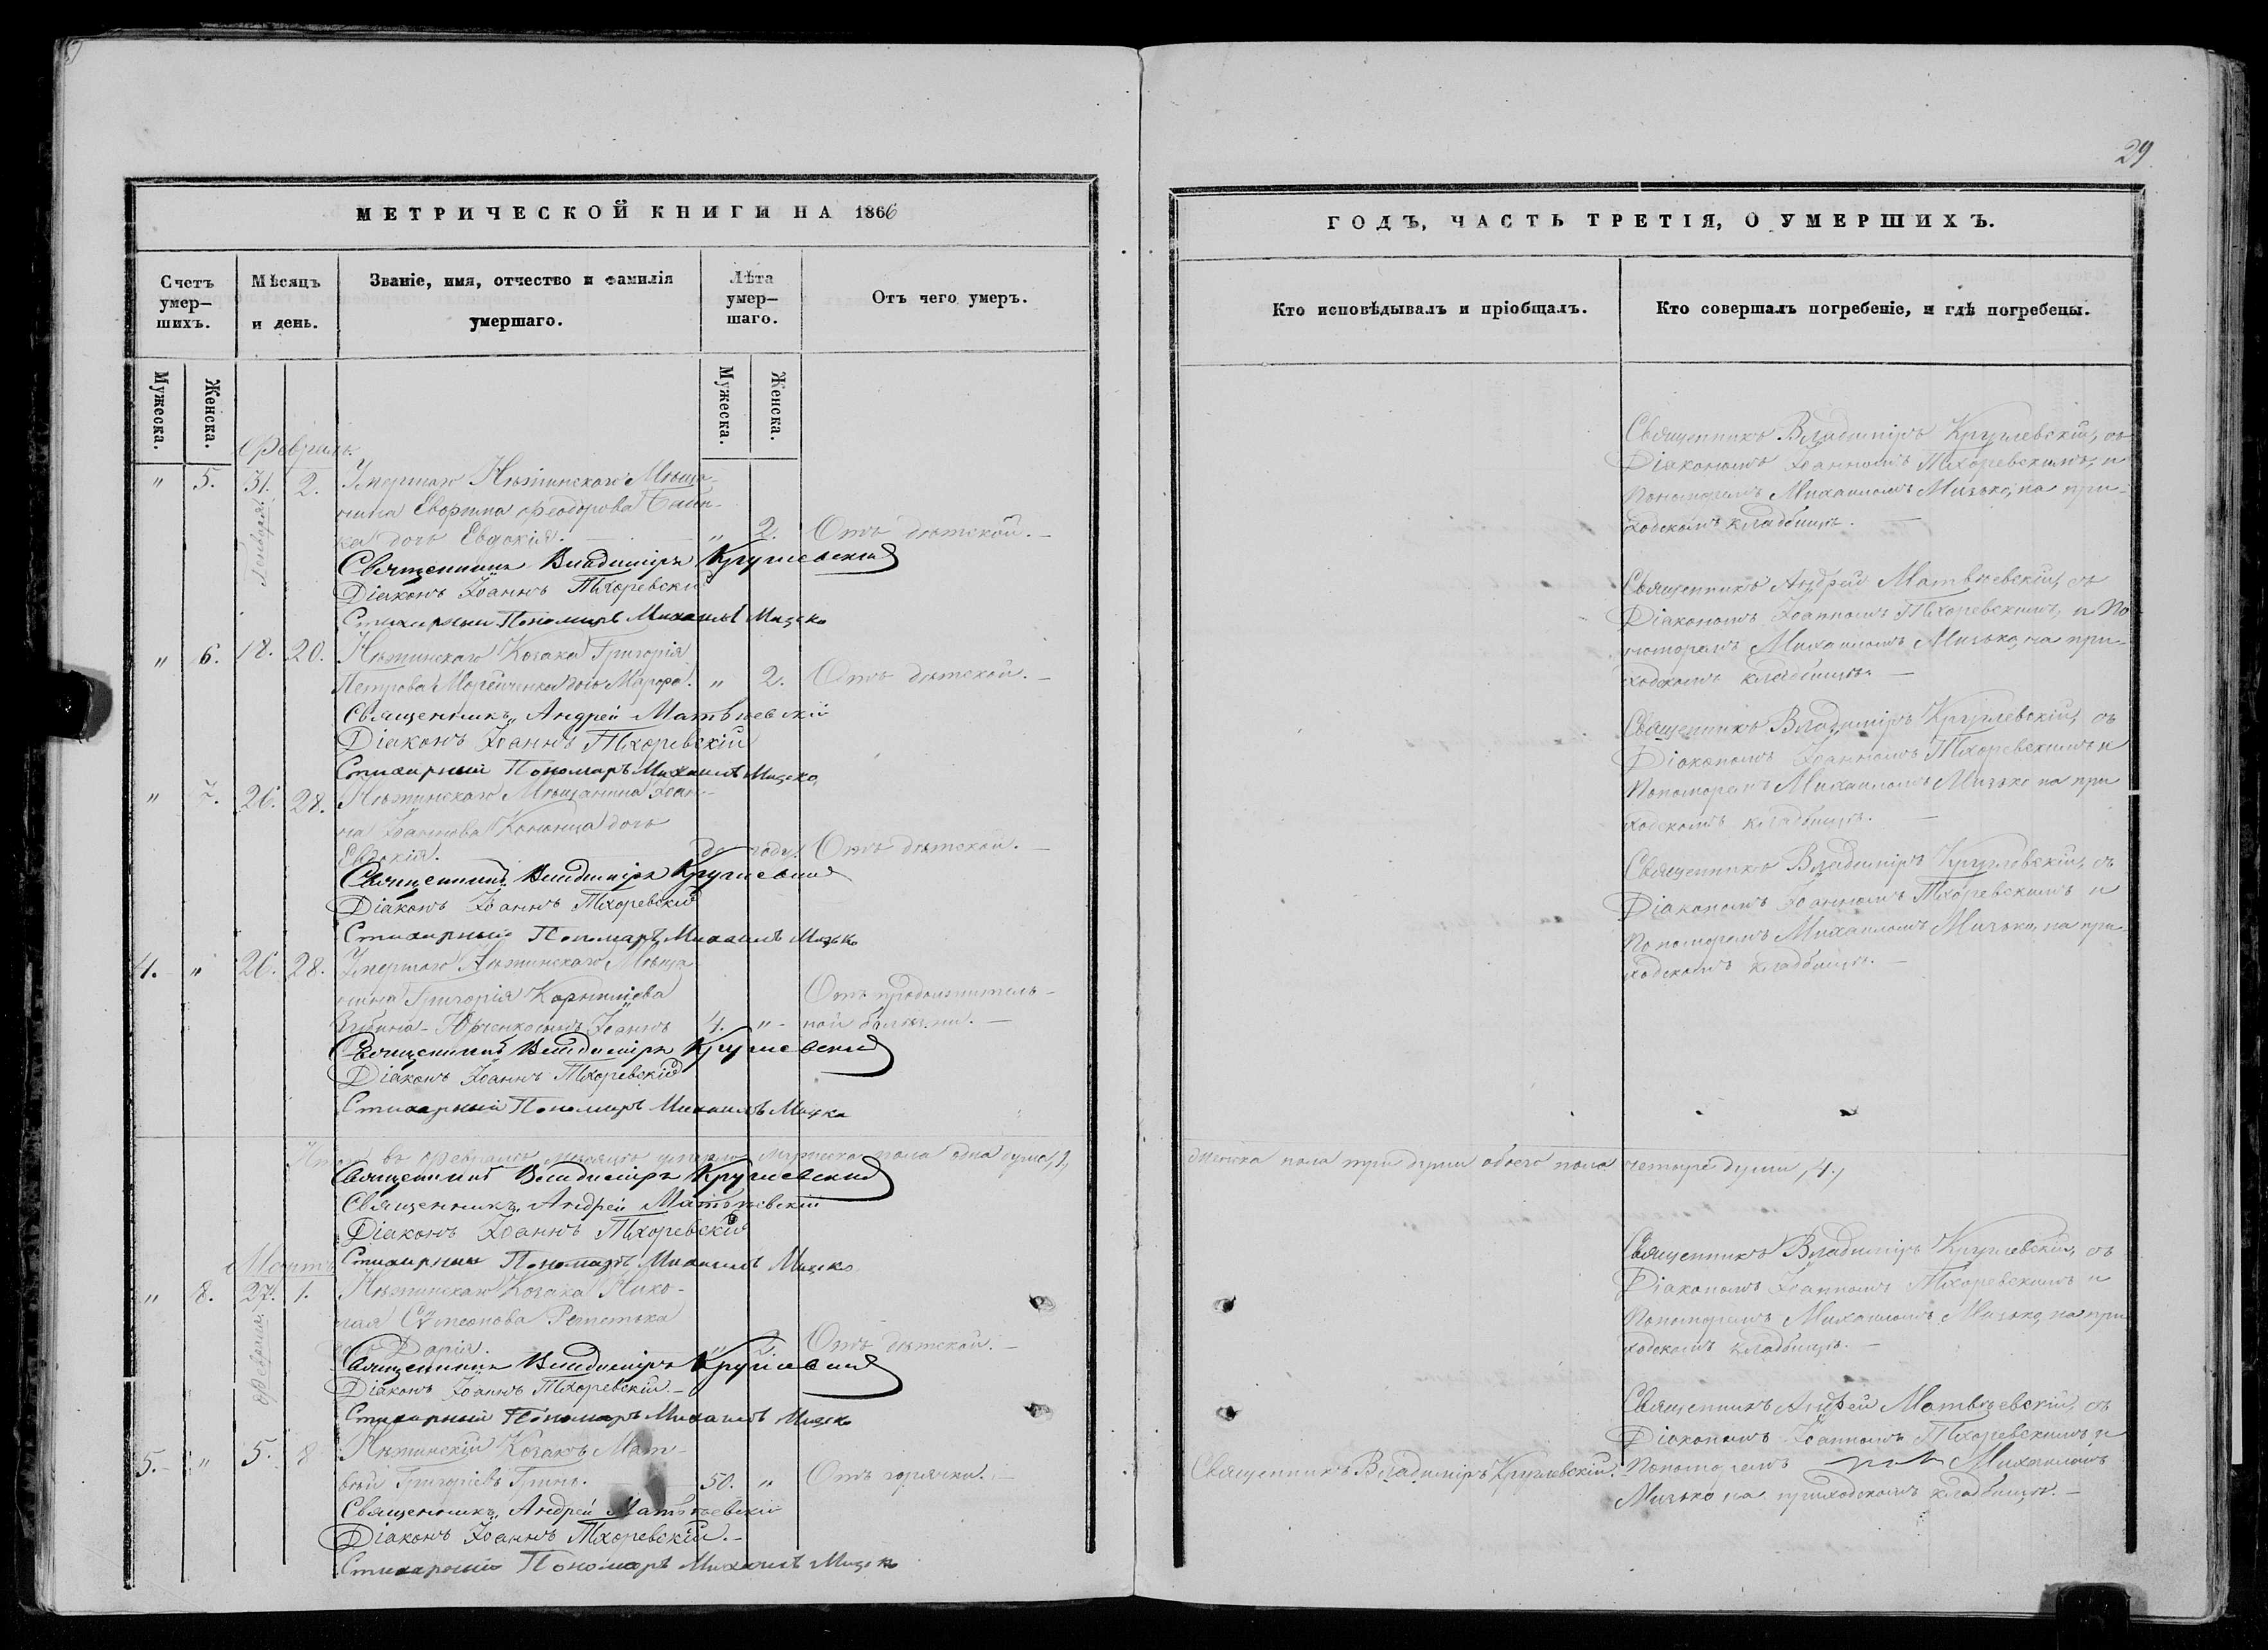 29
МЕТРИЧЕСКОЙ КНИГИ НА 1866
Счетъ умер-
шихъ.
Мѣсяцъ
и день.
Званіе, имя, отчество и фамилія
умершаго.
Лѣта
умер-
шаго.
Отъ чего умеръ.
Мужеска.
Женска.
Мужеска.
Женска.
Февраль
" 5. 31. 2. Умершаго Нѣжинскаго Мѣща-
Генваря
нина Феодорова
дочь Евдокія. " 2. Отъ дѣтской.
Священникъ Владиміръ Круглевскій
Діаконъ Іоаннъ Тхоревскій
Стихарный Пономарь Михаилъ Мизько
" 6. 18. 20. Нѣжинскаго Козака Григорія
Петрова дочь Марфа. " 2. Отъ дѣтской.
Священникъ Андрей Матвѣевскій
Діаконъ Іоаннъ Тхоревскій
Стихарный Пономарь Михаилъ Мизько
" 7. 26. 28. Нѣжинскаго Мѣщанина Іоан-
на Іоаннова дочь
Евдокія. до году. Отъ дѣтской.
Священникъ Владиміръ Круглевскій
Діаконъ Іоаннъ Тхоревскій
Стихарный Пономарь Михаилъ Мизько
4. " 26. 28. Умершаго Нѣжинскаго Мѣща
нина Григорія Корниліева Отъ продолжитель-
Юрченко сынъ Іоаннъ 4. " ной болѣзни.
Священникъ Владиміръ Круглевскій
Діаконъ Іоаннъ Тхоревскій
Стихарный Пономарь Михаилъ Мизько
Итого въ Февралѣ мѣсяцѣ умерло мужеска пола одна душа, 1,
Священникъ Владиміръ Круглевскій
Священникъ Андрей Матвѣевскій
Діаконъ Іоаннъ Тхоревскій
Стихарный Пономарь Михаилъ Мизько
Мартъ
" 8. 27. 1. Нѣжинскаго Козака Нико-
Февраля
лая Сѵмеонова
дочь Дарія. " 2. Отъ дѣтской.
Священникъ Владиміръ Круглевскій
Діаконъ Іоаннъ Тхоревскій.
Стихарный Пономарь Михаилъ Мизько
5. " 5. 8 Нѣжинскій Козакъ Мат-
вѣй Григоріевъ 50. " Отъ горячки.
Священникъ Андрей Матвѣевскій
Діаконъ Іоаннъ Тхоревскій.
Стихарный Пономарь Михаилъ Мизько
ГОДЪ, ЧАСТЬ ТРЕТІЯ, О УМЕРШИХЪ.
Кто исповѣдывалъ и пріобщалъ.
Кто совершалъ погребеніе, и гдѣ погребены.
Священникъ Владиміръ Круглевскій, съ
Діакономъ Іоанномъ Тхоревскимъ, и
Пономаремъ Михаиломъ Мизько, на при-
ходскомъ кладбищѣ.
Священникъ Андрей Матвѣевскій, съ
Діакономъ Іоанномъ Тхоревскимъ, и По
номаремъ Михаиломъ Мизько, на при-
ходскомъ кладбищѣ.
Священникъ Владиміръ Круглевскій, съ
Діакономъ Іоанномъ Тхоревскимъ и
Пономаремъ Михаиломъ Мизько на при
ходскомъ кладбищѣ.
Священникъ Владиміръ Круглевскій, съ
Діакономъ Іоанномъ Тхоревскимъ и
Пономаремъ Михаиломъ Мизько, на при
ходскомъ кладбищѣ.
женска пола три души обоего пола четыре души, 4,
Священникъ Владиміръ Круглевскій, съ
Діакономъ Іоанномъ Тхоревскимъ и
Пономаремъ Михаиломъ Мизько, на при
ходскомъ кладбищѣ.
Священникъ Андрей Матвѣевскій, съ
Діакономъ Іоанномъ Тхоревскимъ и
Священникъ Владиміръ Круглевскій. Пономаремъ Михаиломъ
Мизько на приходскомъ кладбищѣ.